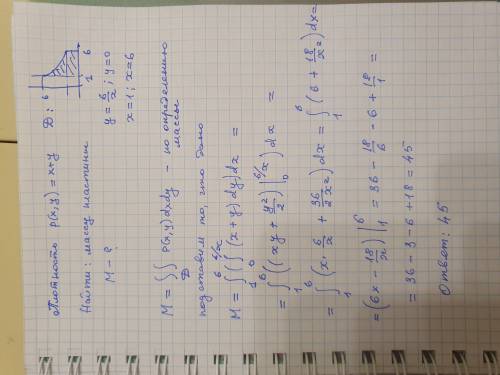 Плотность ρ(x;y) = x+y Д:
6
1 6
Найти: массу пластины y = 6/x ; y=0
M - ? x=1; x=6
M = ∫∫_Д ρ(x,y) dxdy - по определению массы
подставим то, что дано
M = ∫₁⁶ (∫₀^{6/x} (x+y) dy) dx =
= ∫₁⁶ ((xy + y²/2) |₀^{6/x}) dx =
= ∫₁⁶ (x·6/x + 36/2x²) dx = ∫₁⁶ (6 + 18/x²) dx =
= (6x - 18/x) |₁⁶ = 36 - 18/6 - 6 + 18/1 =
= 36 - 3 - 6 + 18 = 45
Ответ: 45